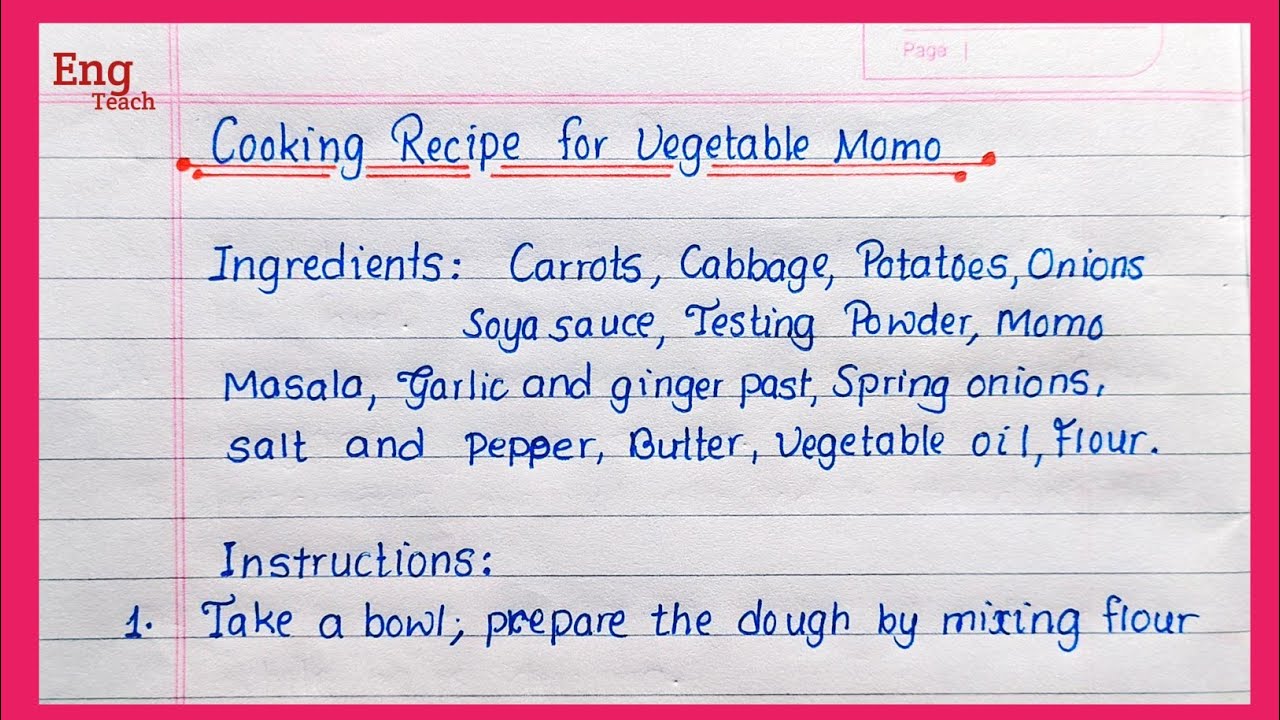 Eng
Teach
Page
Cooking Recipe for Vegetable Momo
Ingredients: Carrots, Cabbage, Potatoes, Onions
Soya sauce, Testing Powder, Momo
Masala, Garlic and ginger past, Spring onions,
salt and Pepper, Butter, Vegetable oil, Flour.
Instructions:
1. Take a bowl; prepare the dough by mixing flour